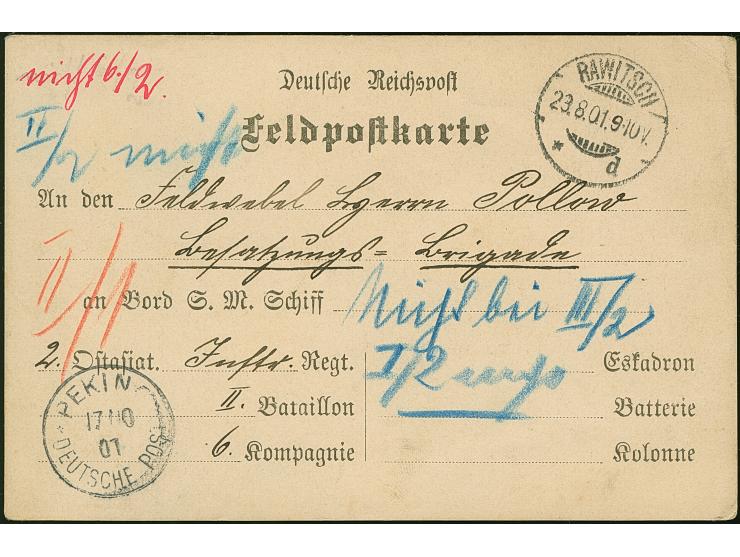 nicht 6./2.
Deutsche Reichspost
Feldpostkarte
RAWITSCH
23.8.01.9-10V.
* d
II/2 nicht
An den Feldwebel Herrn Pollow
Besatzungs= Brigade
II/1
an Bord S. M. Schiff
Nicht bei III/2
2. Ostasiat. Inftr. Regt.
I/2
Eskadron
II. Bataillon
Batterie
6. Kompagnie
Kolonne
PEKIN
17/10
01
DEUTSCHE POST